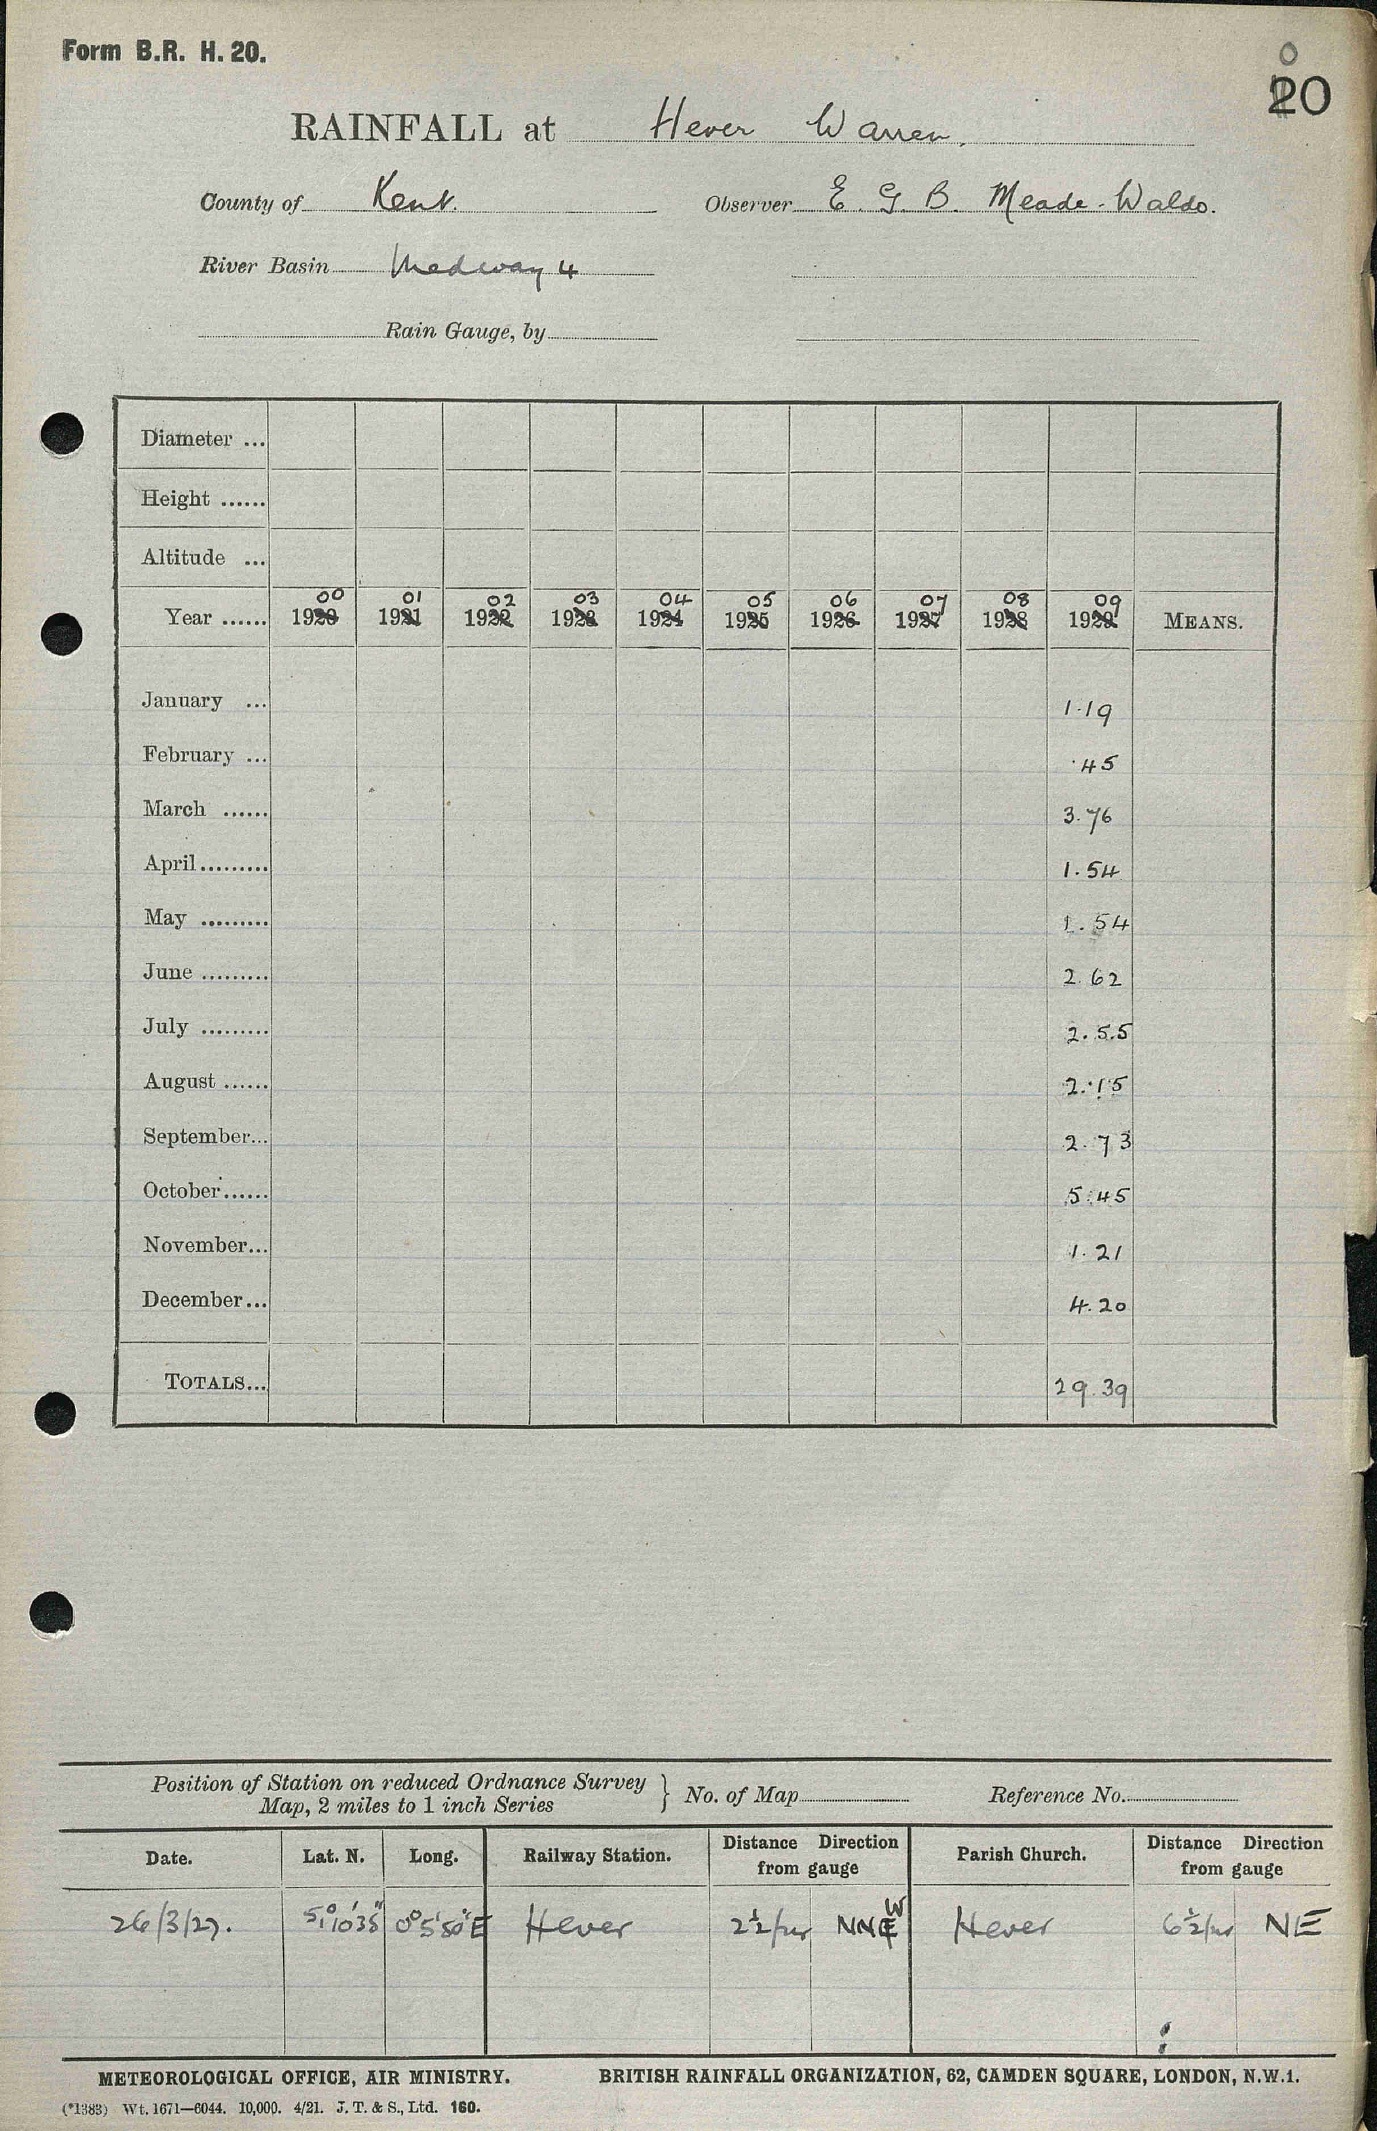 Form B.R. H. 20.
0
20
RAINFALL at Hever Warren.
County of Kent. Observer E. G. B. Meade-Waldo.
River Basin Medway 4
Rain Gauge, by
Diameter ...
Height ......
Altitude ...
00 01 02 03 04 05 06 07 08 09
Year ...... 1920 1921 1922 1923 1924 1925 1926 1927 1928 1929 MEANS.
January ... 1.19
February ... .45
March ...... 3.76
April ......... 1.54
May ......... 1.54
June ......... 2.62
July ......... 2.55
August ...... 2.15
September... 2.73
October ...... 5.45
November... 1.21
December... 4.20
TOTALS... 29.39
Position of Station on reduced Ordnance Survey
Map, 2 miles to 1 inch Series } No. of Map Reference No.
Date. Lat. N. Long. Railway Station. Distance Direction from gauge Parish Church. Distance Direction from gauge
26/3/27. 51°10'35" 0°5'50"E Hever 2½ fur NNW Hever 6½ fur NE
METEOROLOGICAL OFFICE, AIR MINISTRY. BRITISH RAINFALL ORGANIZATION, 62, CAMDEN SQUARE, LONDON, N.W.1.
(*1383) Wt. 1671—6044. 10,000. 4/21. J. T. & S., Ltd. 160.